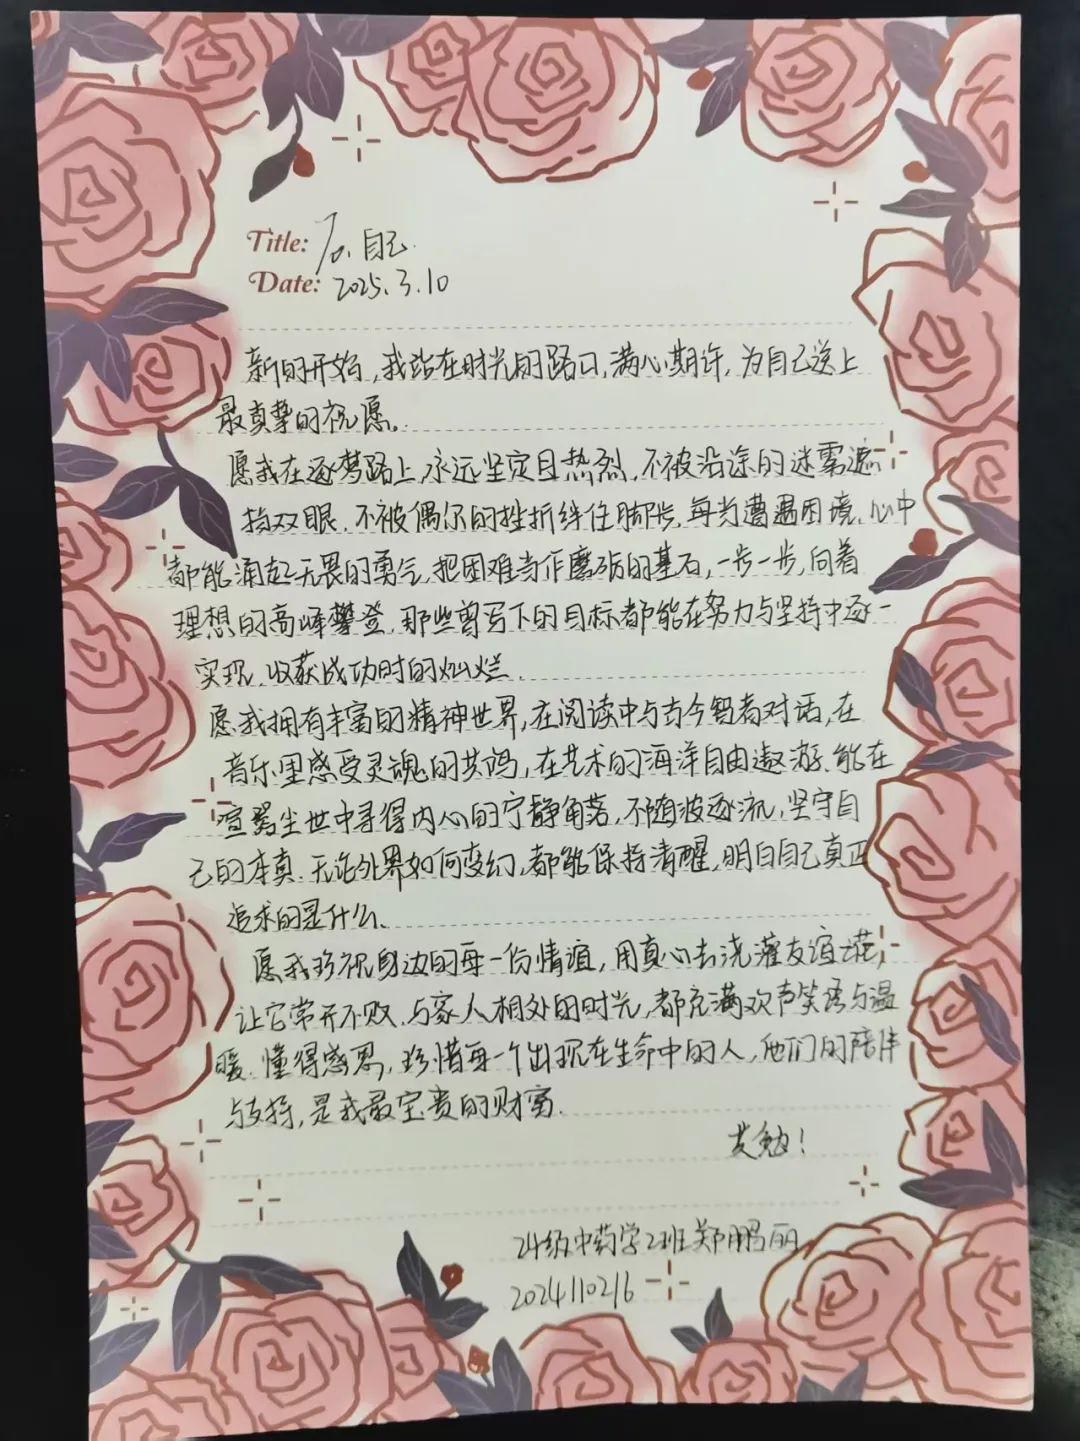 Title: To. 自己.
Date: 2025.3.10
新的开始，我站在时光的路口，满心期许，为自己送上
最真挚的祝愿。
愿我在逐梦路上，永远坚定且热烈，不被沿途的迷雾遮
挡双眼，不被偶尔的挫折绊住脚步，每当遭遇困境，心中
都能涌起无畏的勇气，把困难当作磨砺的基石，一步一步，向着
理想的高峰攀登，那些曾写下的目标都能在努力与坚持中逐一
实现，收获成功时的灿烂.
愿我拥有丰富的精神世界，在阅读中与古今智者对话，在
音乐里感受灵魂的共鸣，在艺术的海洋自由遨游、能在
喧嚣尘世中寻得内心的宁静角落，不随波逐流，坚守自
己的本真，无论外界如何变幻，都能保持清醒，明白自己真正
追求的是什么.
愿我珍视身边的每一份情谊，用真心去浇灌友谊之花，
让它常开不败，与家人相处的时光，都充满欢声笑语与温
暖，懂得感恩，珍惜每一个出现在生命中的人，他们的陪伴
与支持，是我最宝贵的财富.
共勉！
24级中药学2班郑鹏丽
2024110216